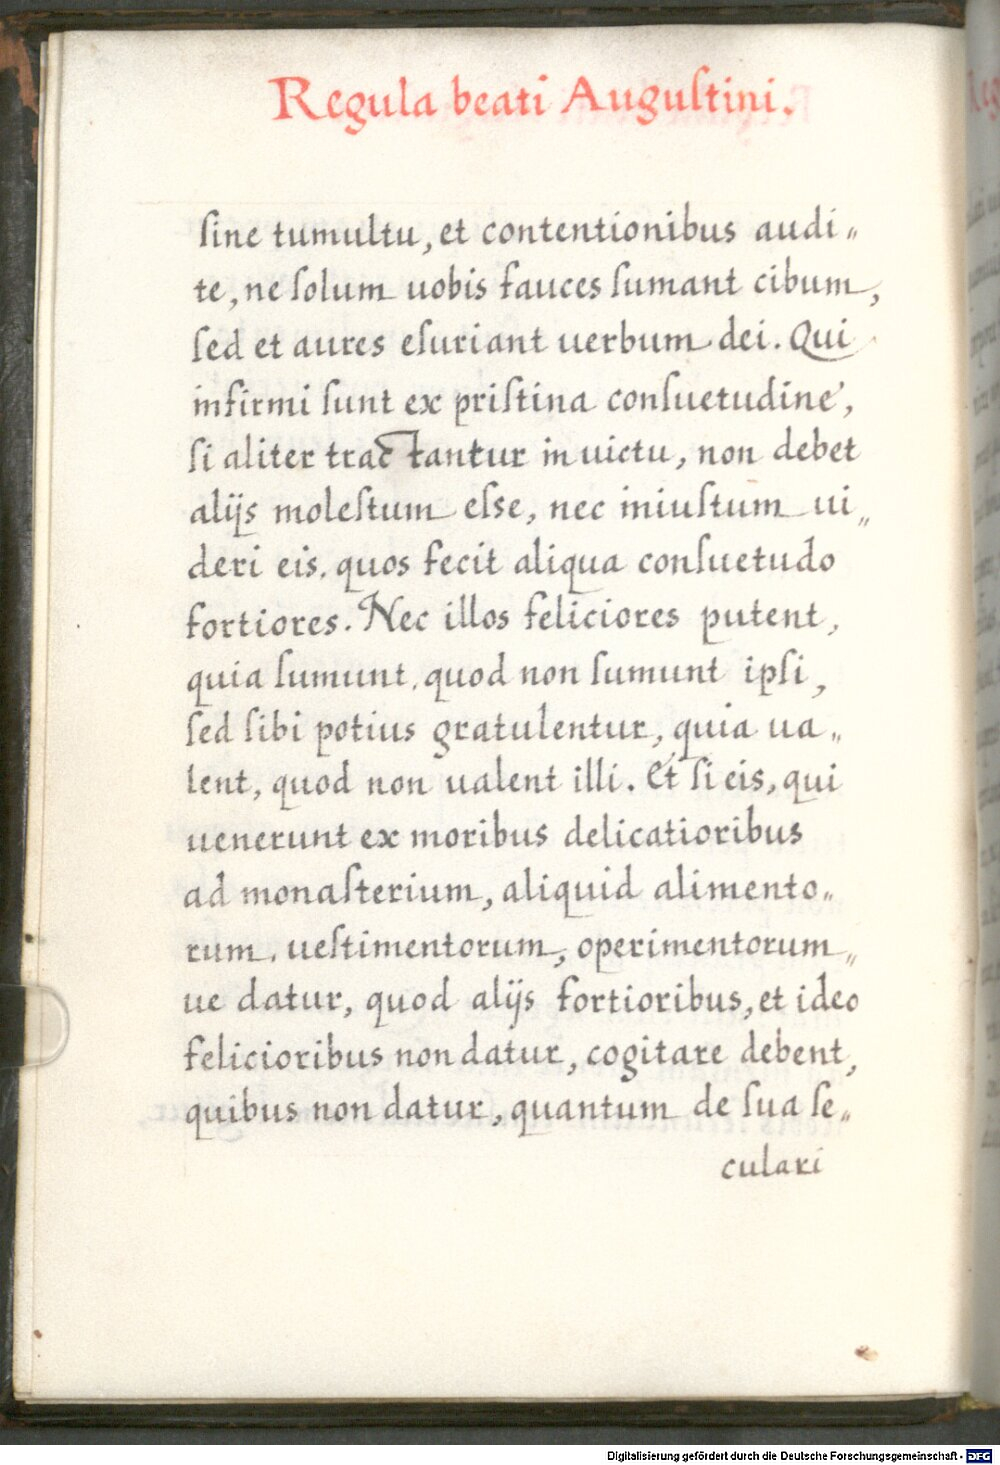 Regula beati Auguſtini.
ſine tumultu, et contentionibus audi„
te, ne ſolum uobis fauces ſumant cibum,
ſed et aures eſuriant uerbum dei. Qui
infirmi ſunt ex priſtina conſuetudine,
ſi aliter tractantur in uictu, non debet
alijs moleſtum eſse, nec iniuſtum ui„
deri eis, quos fecit aliqua conſuetudo
fortiores. Nec illos feliciores putent,
quia ſumunt, quod non ſumunt ipſi,
ſed ſibi potius gratulentur, quia ua„
lent, quod non ualent illi. Et ſi eis, qui
uenerunt ex moribus delicatioribus
ad monaſterium, aliquid alimento„
rum, ueſtimentorum, operimentorum„
ue datur, quod alijs fortioribus, et ideo
felicioribus non datur, cogitare debent,
quibus non datur, quantum de ſua ſe„
culari
Digitalisierung gefördert durch die Deutsche Forschungsgemeinschaft - DFG